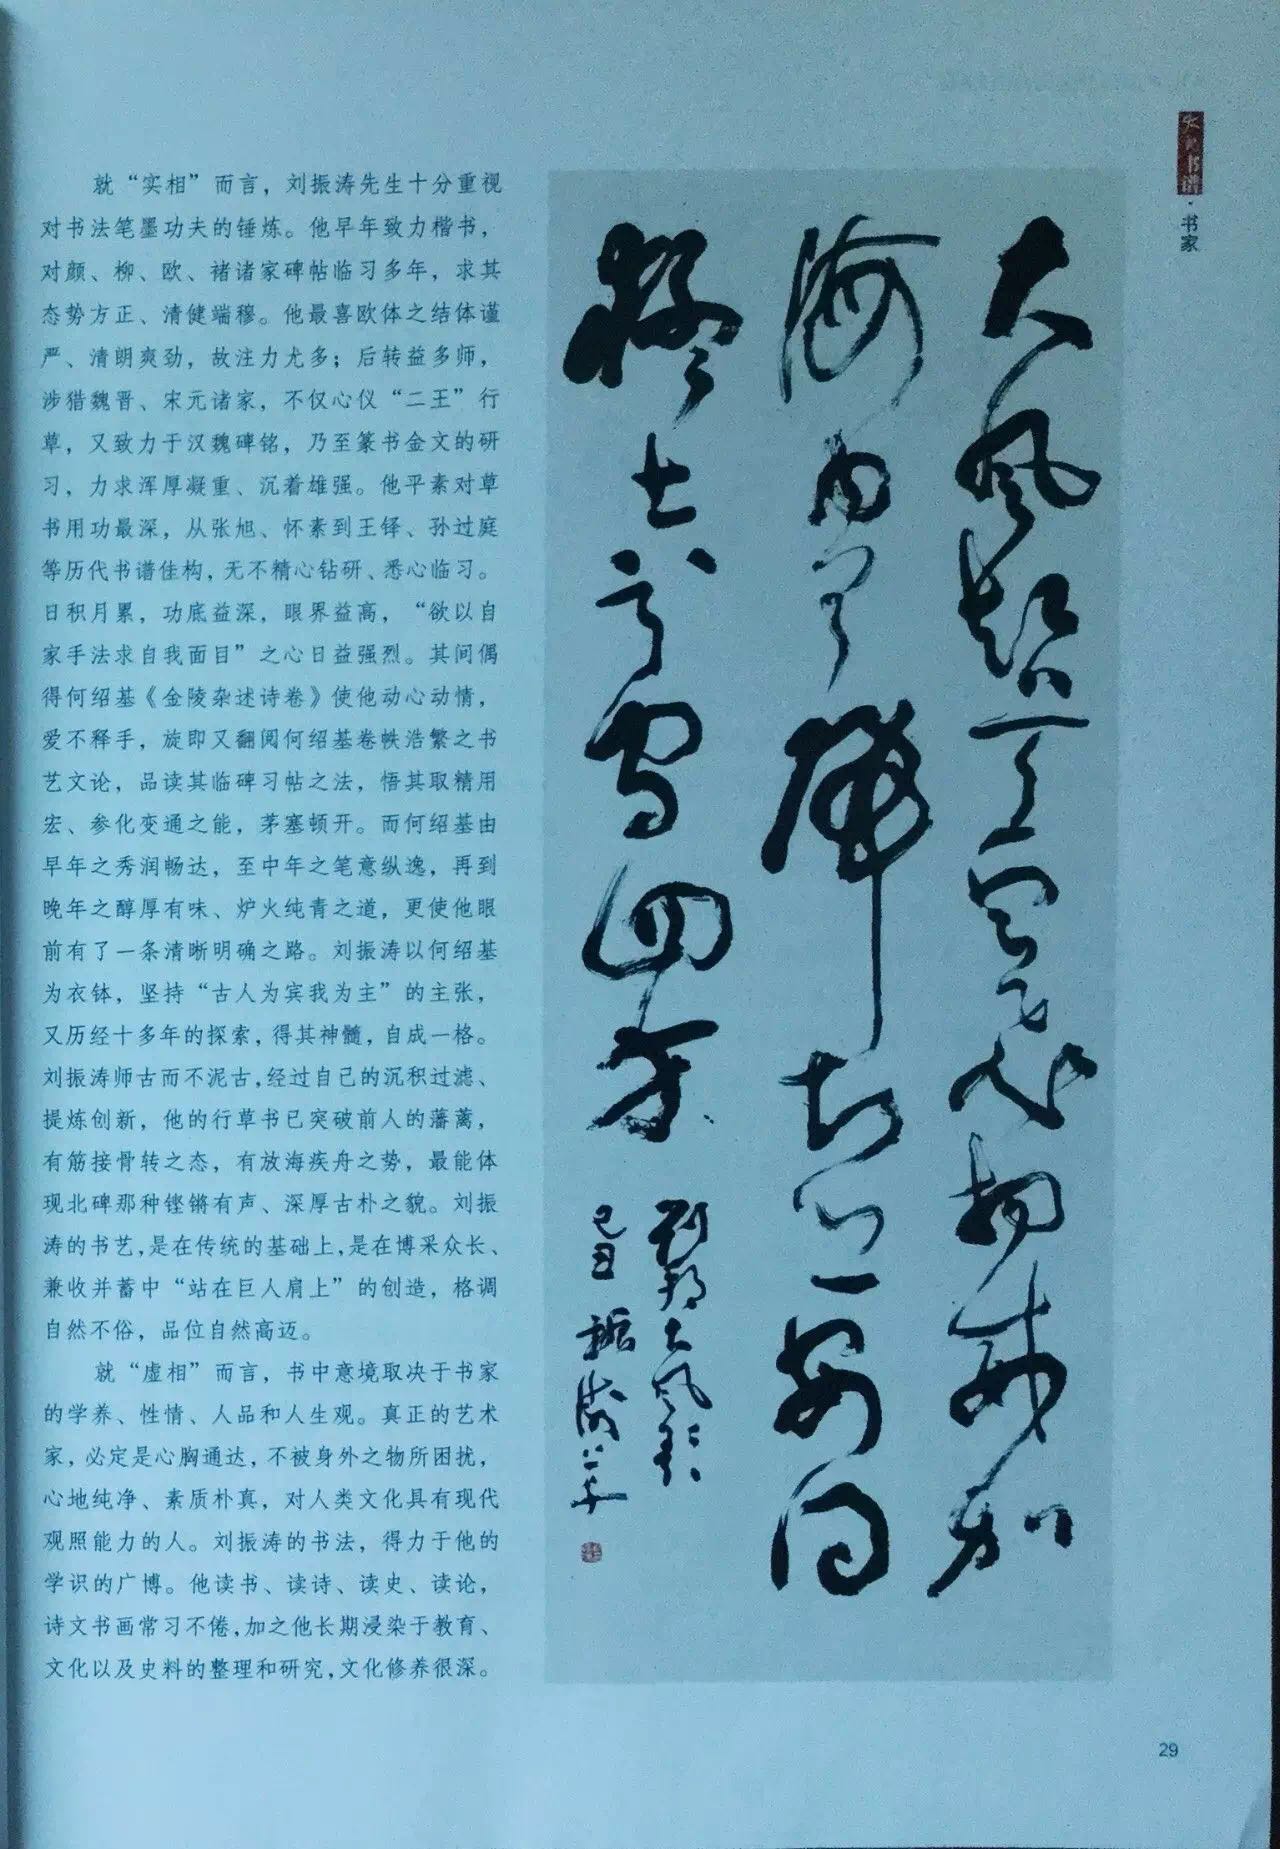 书谱·书家
就“实相”而言，刘振涛先生十分重视
对书法笔墨功夫的锤炼。他早年致力楷书，
对颜、柳、欧、褚诸家碑帖临习多年，求其
态势方正、清健端穆。他最喜欧体之结体谨
严、清朗爽劲，故注力尤多；后转益多师，
涉猎魏晋、宋元诸家，不仅心仪“二王”行
草，又致力于汉魏碑铭，乃至篆书金文的研
习，力求浑厚凝重、沉着雄强。他平素对草
书用功最深，从张旭、怀素到王铎、孙过庭
等历代书谱佳构，无不精心钻研、悉心临习。
日积月累，功底益深，眼界益高，“欲以自
家手法求自我面目”之心日益强烈。其间偶
得何绍基《金陵杂述诗卷》使他动心动情，
爱不释手，旋即又翻阅何绍基卷帙浩繁之书
艺文论，品读其临碑习帖之法，悟其取精用
宏、参化变通之能，茅塞顿开。而何绍基由
早年之秀润畅达，至中年之笔意纵逸，再到
晚年之醇厚有味、炉火纯青之道，更使他眼
前有了一条清晰明确之路。刘振涛以何绍基
为衣钵，坚持“古人为宾我为主”的主张，
又历经十多年的探索，得其神髓，自成一格。
刘振涛师古而不泥古，经过自己的沉积过滤、
提炼创新，他的行草书已突破前人的藩蓠，
有筋接骨转之态，有放海疾舟之势，最能体
现北碑那种铿锵有声、深厚古朴之貌。刘振
涛的书艺，是在传统的基础上，是在博采众长、
兼收并蓄中“站在巨人肩上”的创造，格调
自然不俗，品位自然高迈。
就“虚相”而言，书中意境取决于书家
的学养、性情、人品和人生观。真正的艺术
家，必定是心胸通达，不被身外之物所困扰，
心地纯净、素质朴真，对人类文化具有现代
观照能力的人。刘振涛的书法，得力于他的
学识的广博。他读书、读诗、读史、读论，
诗文书画常习不倦，加之他长期浸染于教育、
文化以及史料的整理和研究，文化修养很深。
大风起兮云飞扬威加
海内兮归故乡安得
猛士兮守四方
刘邦大风歌
己丑振涛书
29